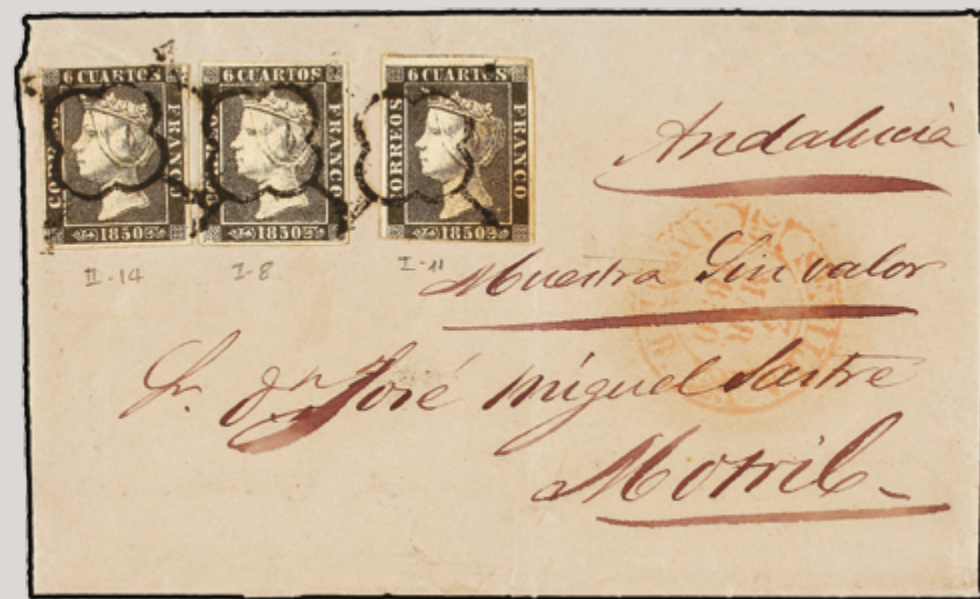 6 CUARTOS
CORREOS
FRANCO
1850
6 CUARTOS
CORREO
FRANCO
1850
6 CUARTOS
CORREOS
FRANCO
1850
II-14
I-8
I-11
Andalucia
Muestra Sin valor
Sr. Dn José Miguel Sastre
Motril